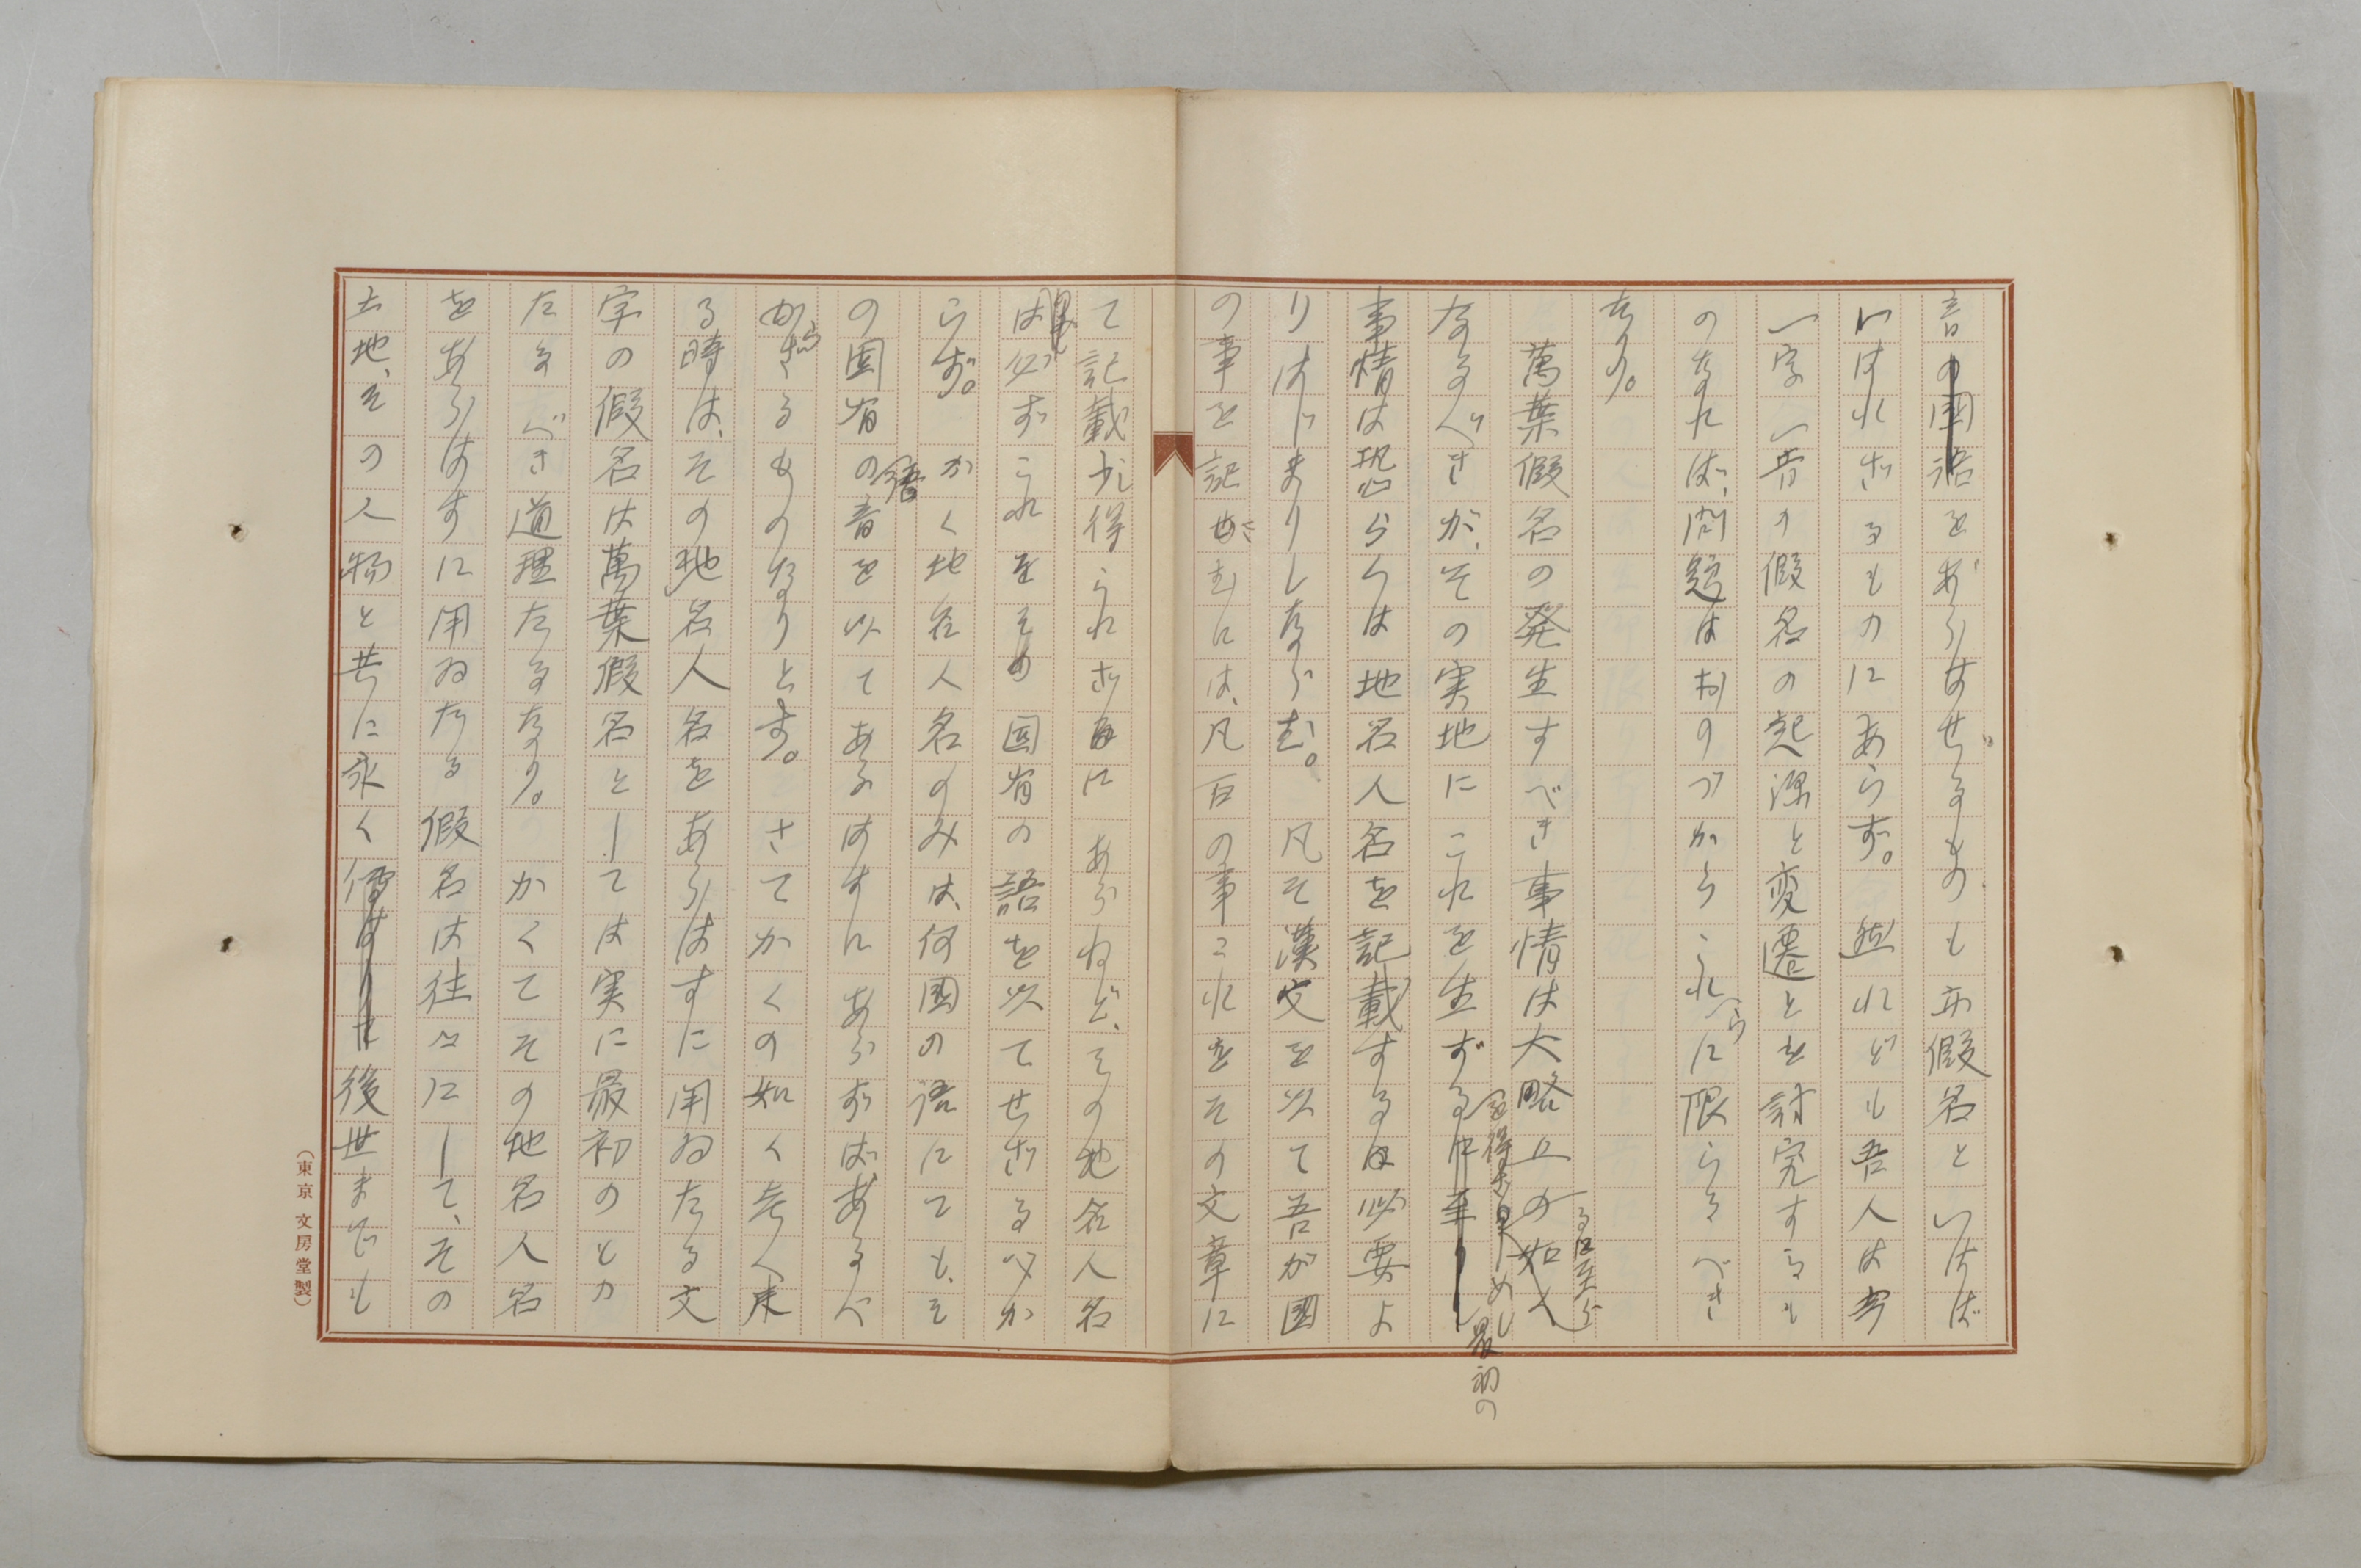 音の国語をあらはせるものも亦假名といはば
いはれざるものにあらず。然れども吾人は今
一字一音の假名の起源と変遷とを討究するも
のなれば、問題はおのづからこれらに限らるべき
なり。
萬葉假名の発生すべき事情は大略上の如く
るに至ら
なるべきが、その実地にこれを生ずる
を得ざらしめし最初の
事情は恐らくは地名人名を記載するは必要よ
りはじまりしならむ。凡そ漢文を以て吾が國
の事を記さむには、凡百の事これをその文章に
て記載し得られざるにあらねど、その地名人名
は必ずこれをその国有の語を以てせざるべか
らず。かく地名人名のみは、何國の語にても、そ
の国有の音を以てあらはすにあらずば、あるべ
語
からざるものなりとす。さてかくの如く考へ来
る時は、その地名人名をあらはすに用ゐたる文
字の假名は萬葉假名としては実に最初のもの
たるべき道理たるなり。かくてその地名人名
をあらはすに用ゐたる假名は往々にして、その
土地、その人物と共に永く後世までも
(東京 文房堂製)